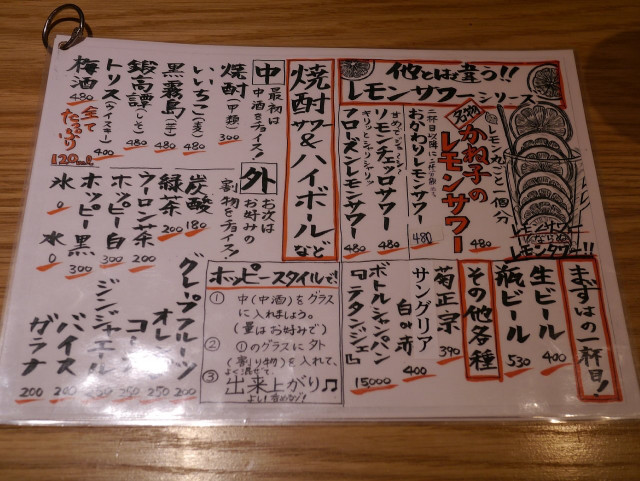 他とは違う!!
レモンサワーシリーズ
レモン丸ごと一個分
名物
かね子の
レモンサワー
480
レモンサワー
ならぬ
レモンタワー!!
おかわりレモンサワー
480
リモンチェッロサワー
480
フローズンレモンサワー
480
焼酎サワー&ハイボールなど
中
最初は
中酒をチョイス!
焼酎(甲類)
300
いいちこ(麦)
480
黒霧島(芋)
480
鍛高譚(しそ)
480
トリス(ウイスキー)
400
梅酒
480
全て
たっぷり
120ml
外
お次は
お好みの
割物をチョイス!
炭酸
180
緑茶
200
ウーロン茶
200
ホッピー白
300
ホッピー黒
300
氷
0
水
0
グレープフルーツ
200
オレ
250
コー
250
ジンジャエール
250
バイス
200
ガラナ
200
ホッピースタイルで!
① 中(中酒)をグラス
に入れましょう。
(量はお好みで)
② ①のグラスに外
(割り物)を入れて、
よく混ぜて
③ 出来上がり♫
まずはの一杯目!
生ビール
400
瓶ビール
530
その他各種
菊正宗
390
サングリア
白or赤
400
ボトルシャンパン
『ラタンジェ』
15000